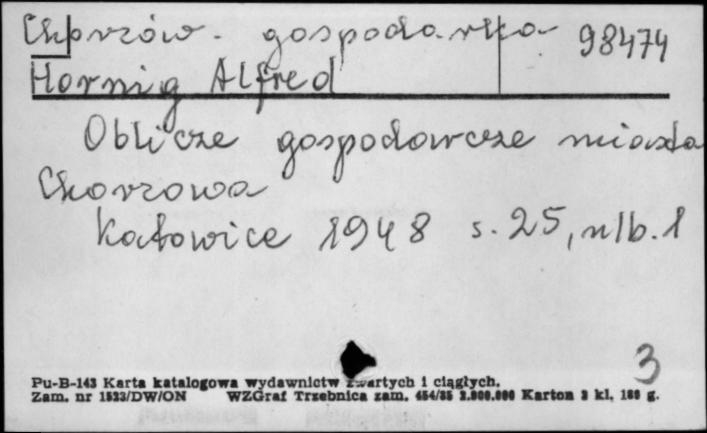 Chorzów - gospodarka 98474
Hornig Alfred
Oblicze gospodarcze miasta
Chorzowa
Katowice 1948 s. 25, nlb. 1
3
Pu-B-143 Karta katalogowa wydawnictw zwartych i ciągłych.
Zam. nr 1523/DW/ON WZGraf Trzebnica zam. 454/85 2.000.000 Karton 3 kl. 180 g.